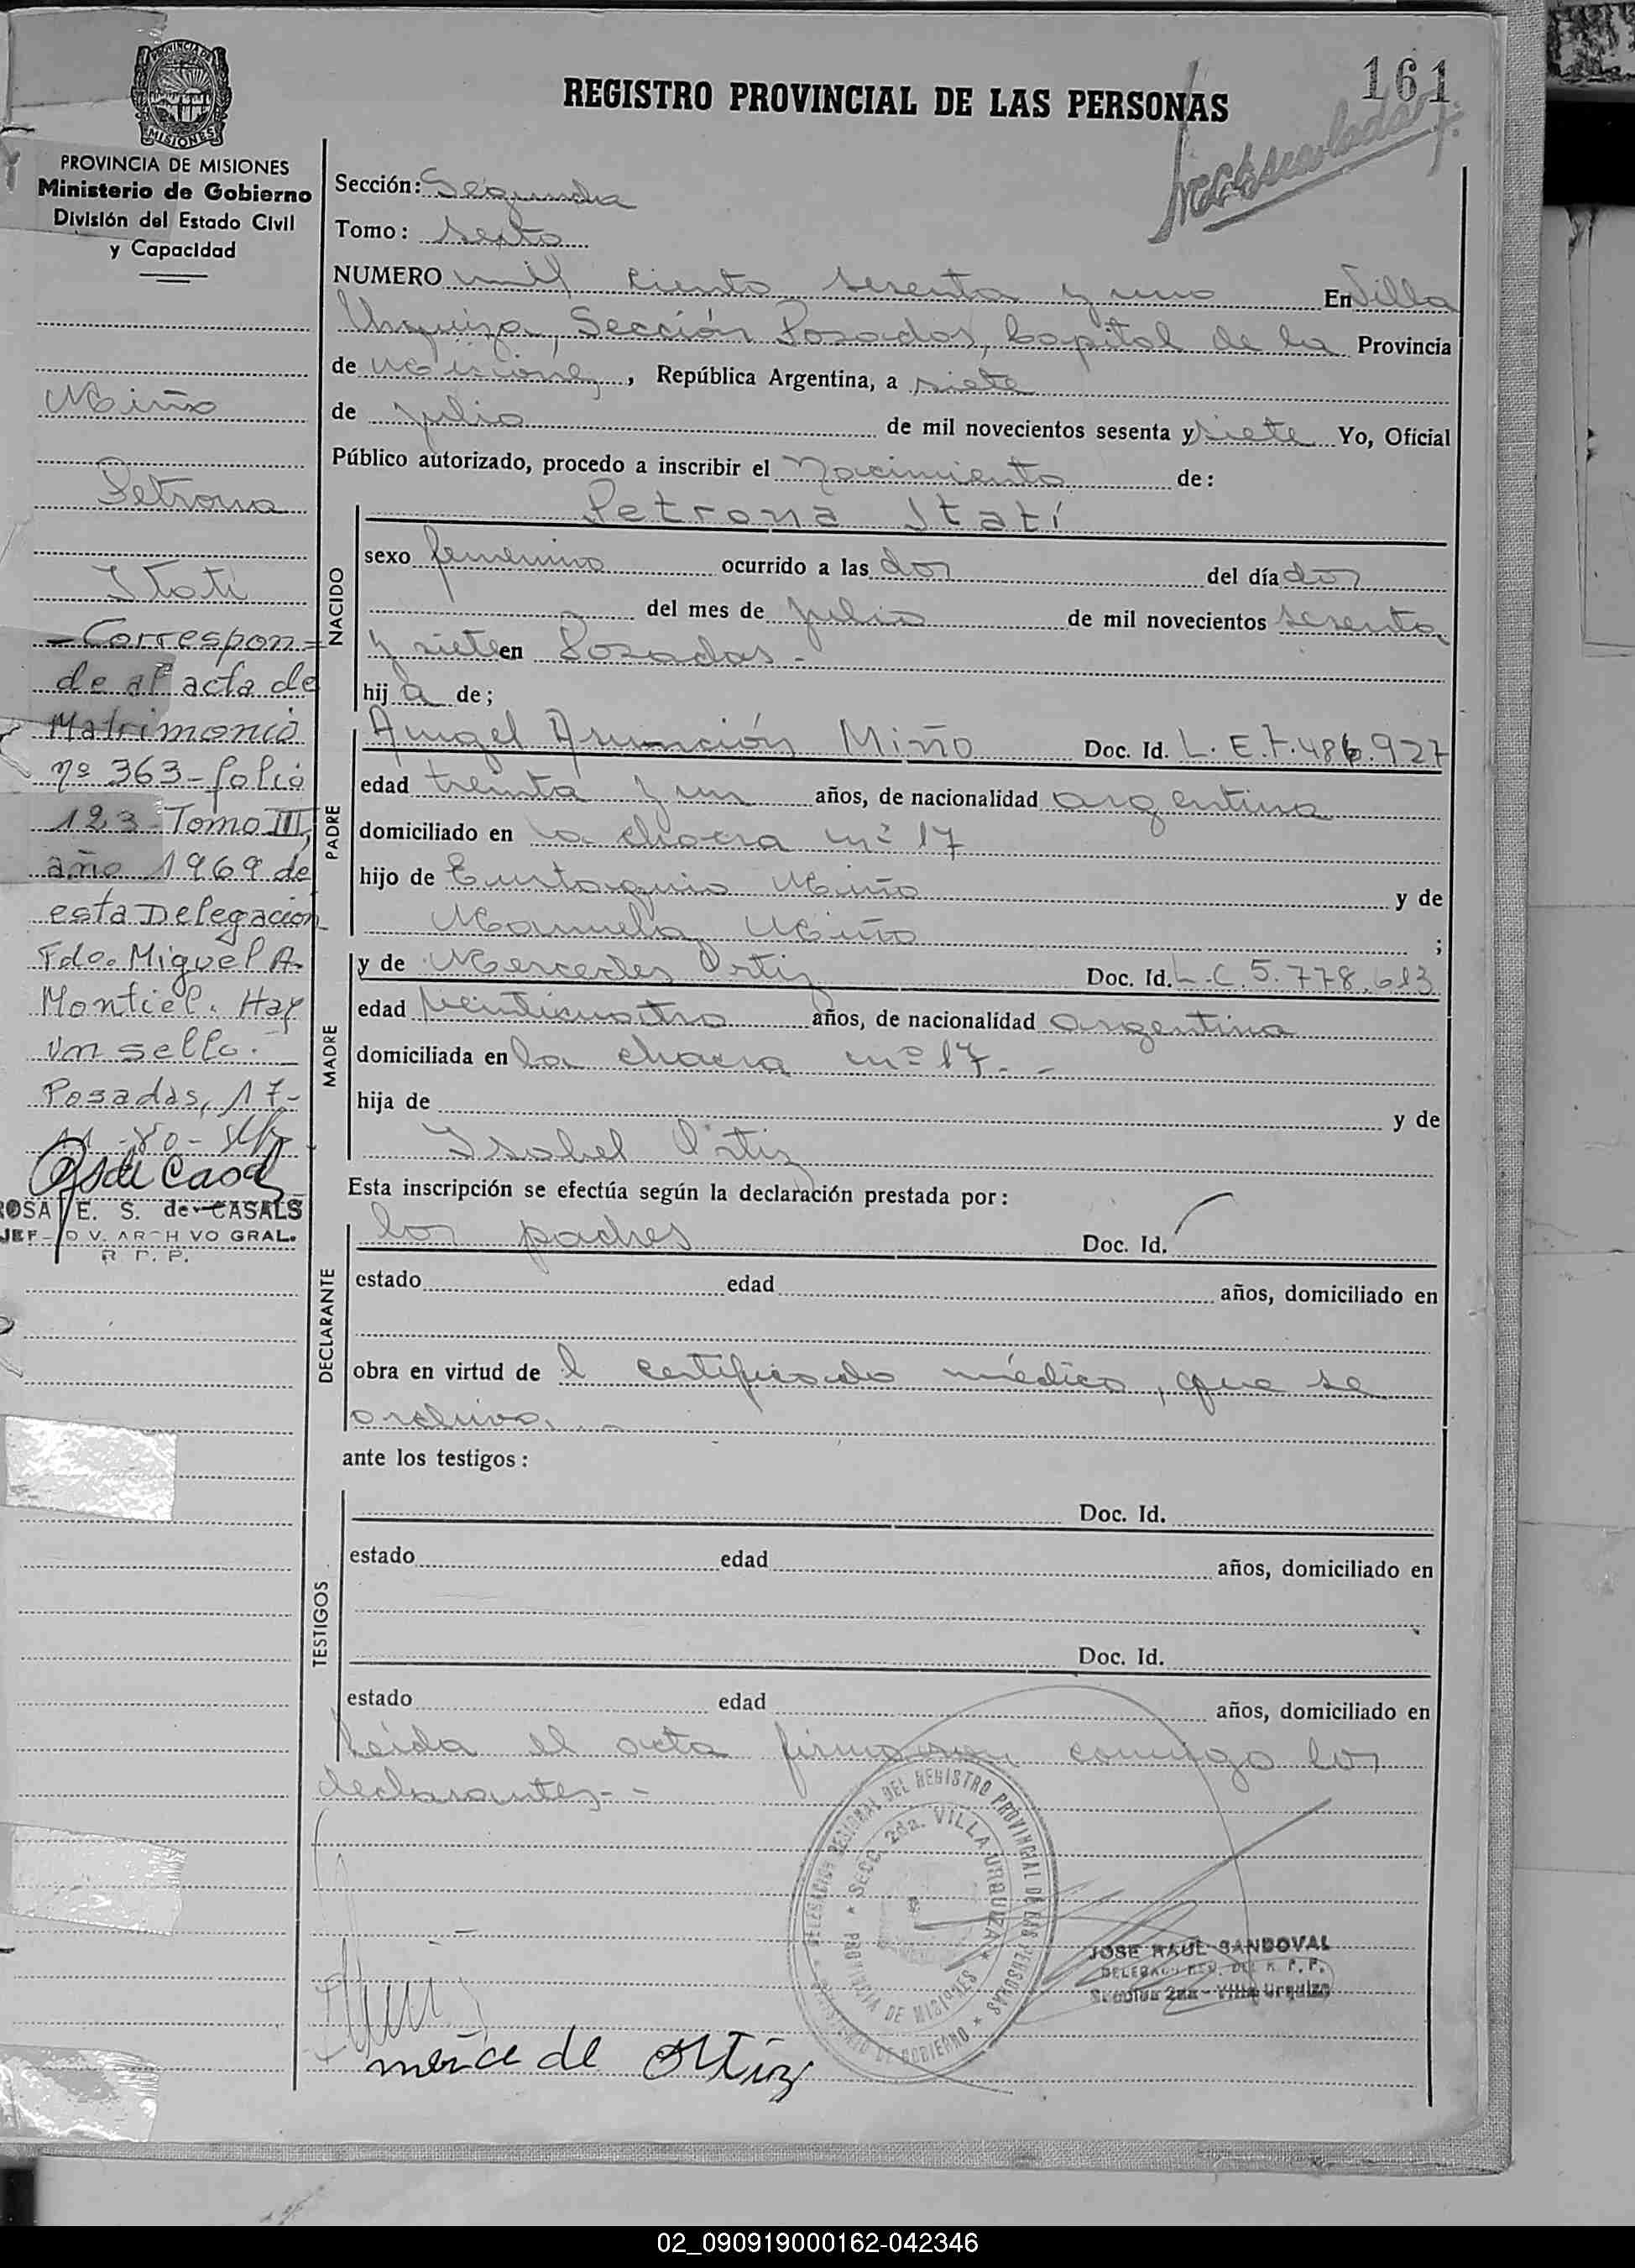 161
REGISTRO PROVINCIAL DE LAS PERSONAS
PROVINCIA DE MISIONES
PROVINCIA DE MISIONES
Ministerio de Gobierno
División del Estado Civil
y Capacidad
Miño
Petrona
Itati
- Correspon=
de al acta de
Matrimonio
nº 363 - folio
123 - Tomo III,
año 1969 de
esta Delegación
Fdo. Miguel A.
Montiel. Hay
un sello.
Posadas, 17-
11-80-
ROSA E. S. de CASALS
JEF- DV. ARCHVO GRAL.
R. P. P.
Sección: Segunda
Tomo: Sexto
NUMERO mil ciento sesenta y uno En Villa
Urquiza, Sección Posadas, Capital de la Provincia
de Misiones, República Argentina, a siete
de julio de mil novecientos sesenta y siete Yo, Oficial
Público autorizado, procedo a inscribir el Nacimiento de:
NACIDO
Petrona Itatí
sexo femenino ocurrido a las dos del día dos
del mes de julio de mil novecientos sesenta
y siete en Posadas.-
hija de;
PADRE
Angel Asunción Miño Doc. Id. L. E. 7.486.927
edad treinta y un años, de nacionalidad argentina
domiciliado en la chacra nº 17
hijo de Eustaquio Miño y de
Manuela Miño ;
MADRE
y de Mercedes Ortiz Doc. Id. L.C. 5.778.613
edad veinticuatro años, de nacionalidad argentina
domiciliada en la chacra nº 17.-
hija de y de
Isabel Ortiz
Esta inscripción se efectúa según la declaración prestada por:
DECLARANTE
los padres Doc. Id.
estado edad años, domiciliado en
obra en virtud de l certificado médico, que se
archiva.-
ante los testigos:
TESTIGOS
Doc. Id.
estado edad años, domiciliado en
Doc. Id.
estado edad años, domiciliado en
Leída el acta firman conmigo los
declarantes.-
DELEGACION REGIONAL DEL REGISTRO PROVINCIAL DE LAS PERSONAS
MINISTERIO DE GOBIERNO
SECC. 2da. VILLA URQUIZA
PROVINCIA DE MISIONES
JOSE RAUL SANDOVAL
DELEGADO REG. DEL R. P. P.
Sección 2da - Villa Urquiza
merce de Ortiz
02_090919000162-042346